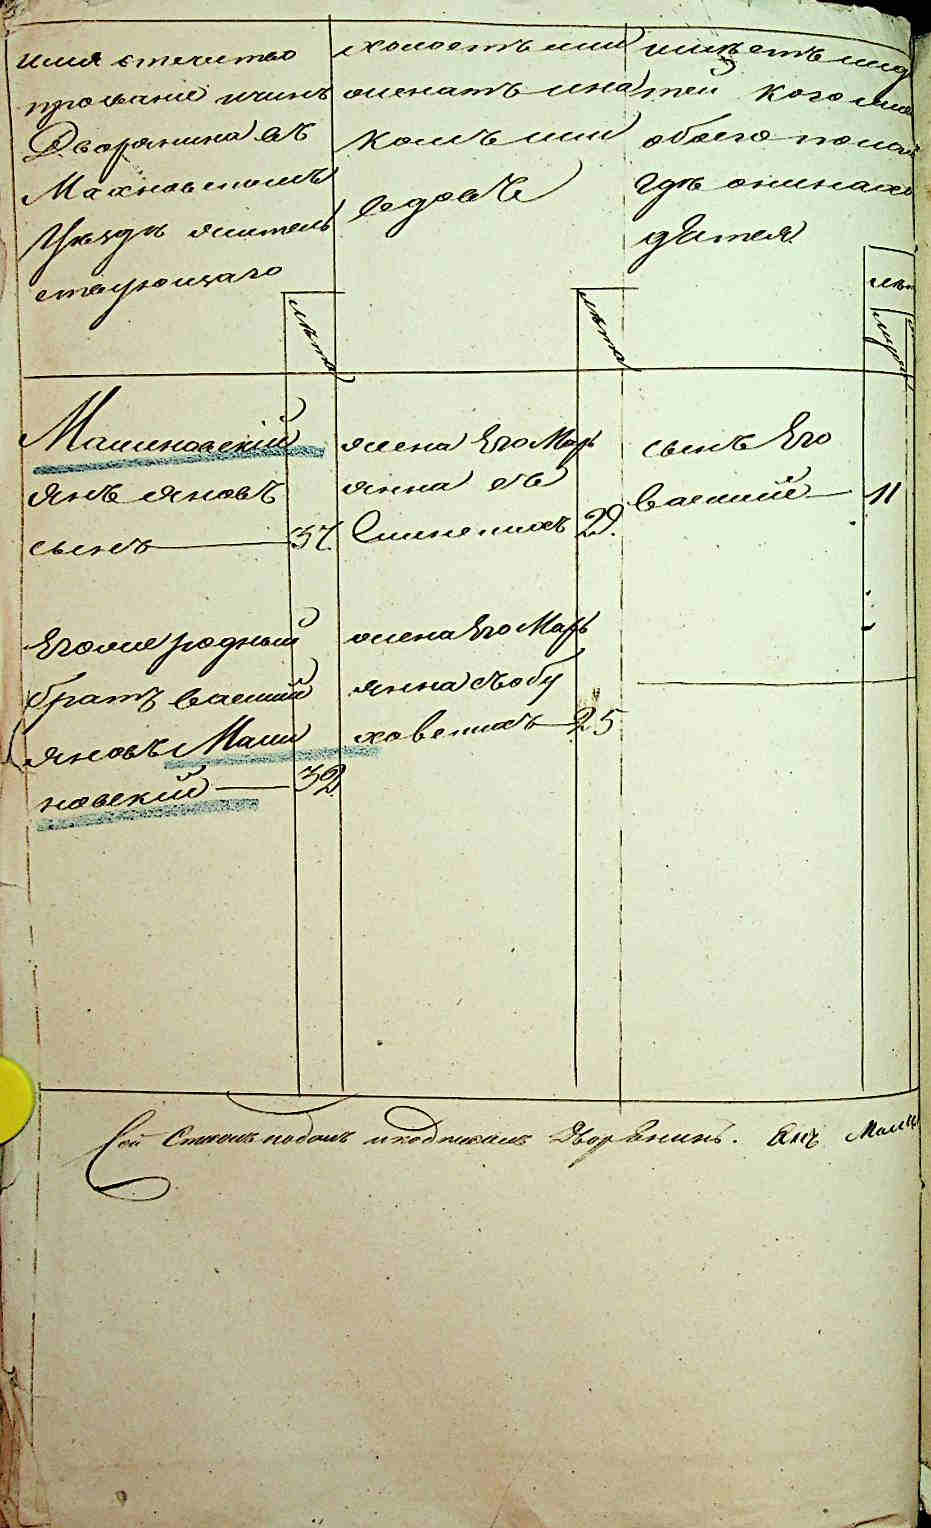 имя отечество
прозвание и чинъ
Дворянина въ
Махновскомъ
Уѣздѣ жітель
ствующаго
лѣта
холостъ или
женатъ и на
комъ или
вдовъ
лѣта
имѣетъ ли дѣ
тей кого имя
обоего пола и
гдѣ они нахо
дятся
лѣта
Малиновскій
янъ яновъ
сынъ 37.
жена Его Мар
янна съ
29.
сынъ Его
василій 11
Его же родный
братъ василий
яновъ Мали
новский 32
жена Его Мар
янна съ Бу
ховецкихъ 25
Сей Списокъ подалъ и подписалъ Дворенинъ. Янъ Мали